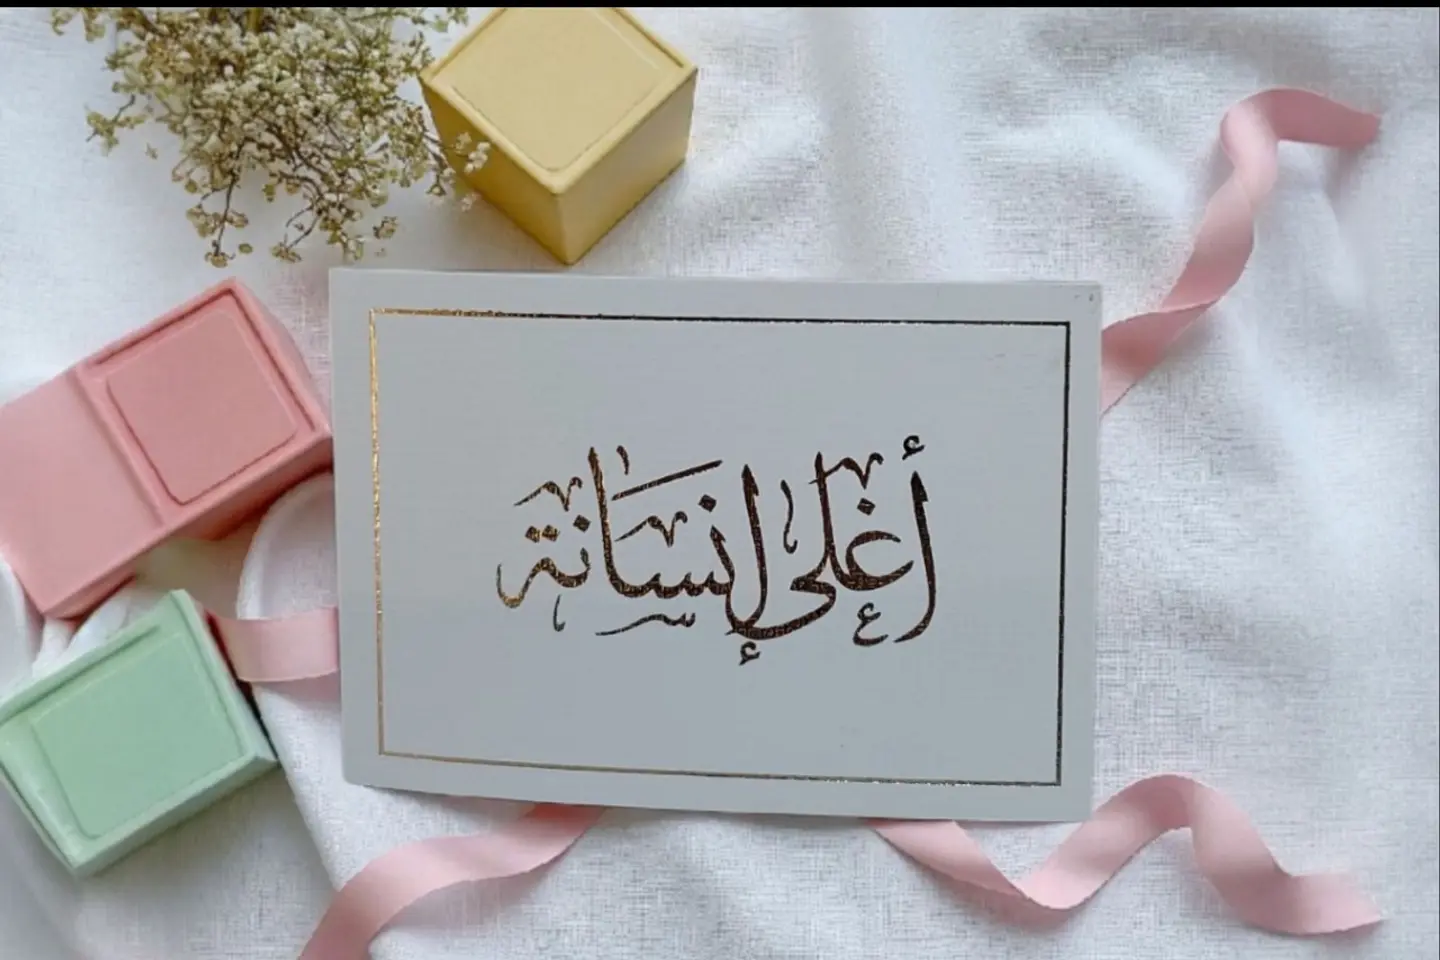 أغلى إنسانة